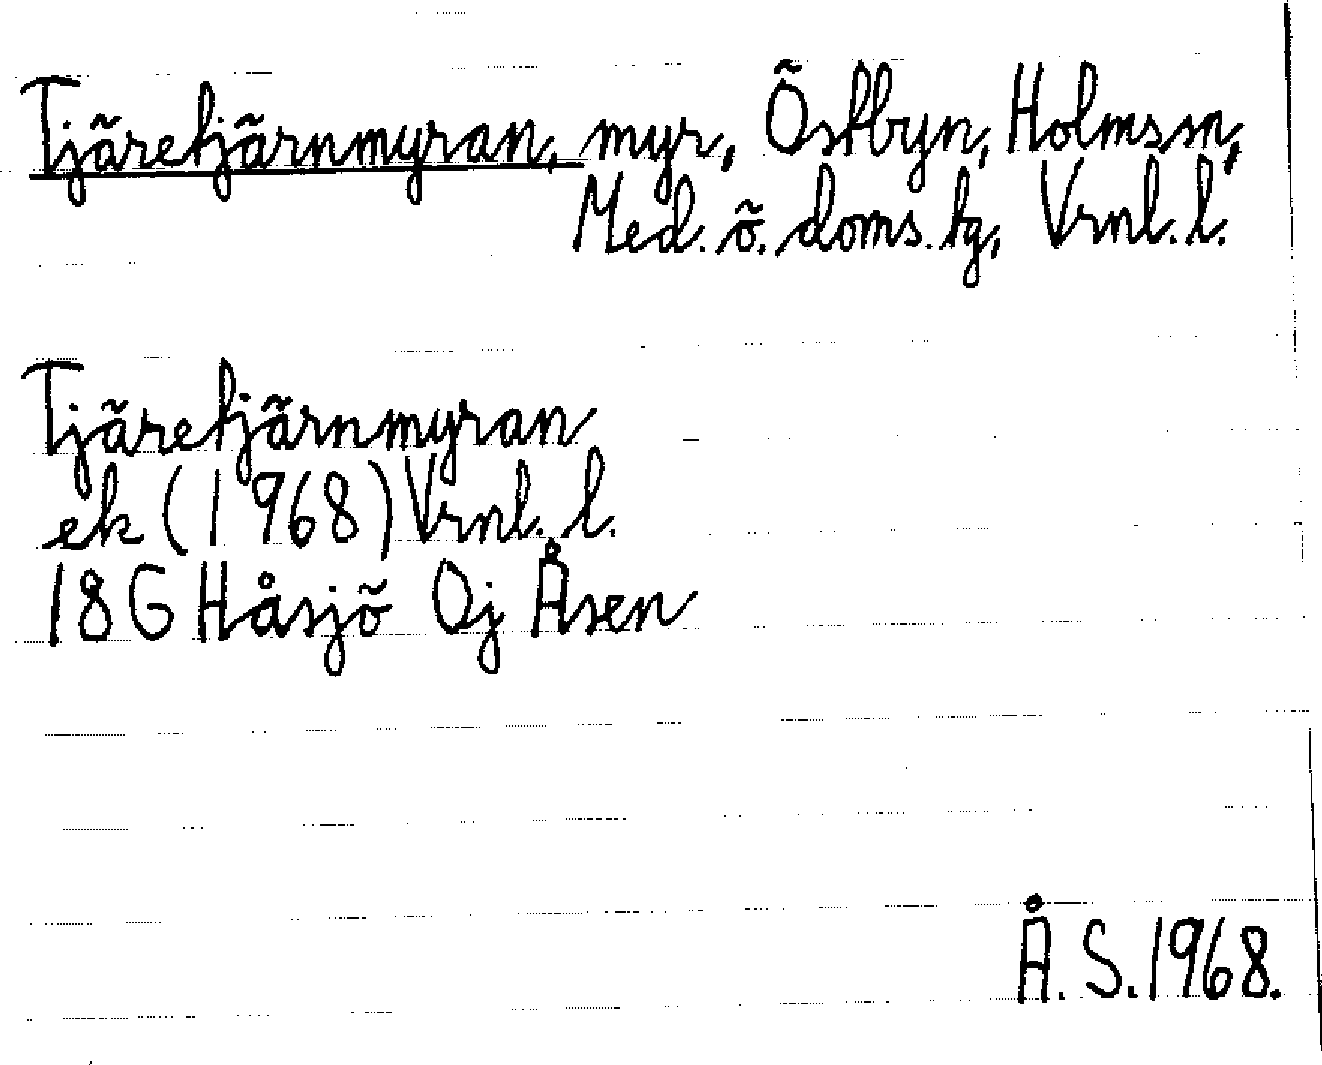 Tjäretjärnmyran, myr, Östbyn, Holmsm,
Med. ö. doms. tg, Vrnl. l.
Tjäretjärnmyran
ek (1968) Vrnl. l.
18G Håsjö Oj Åsen
Å. S. 1968.